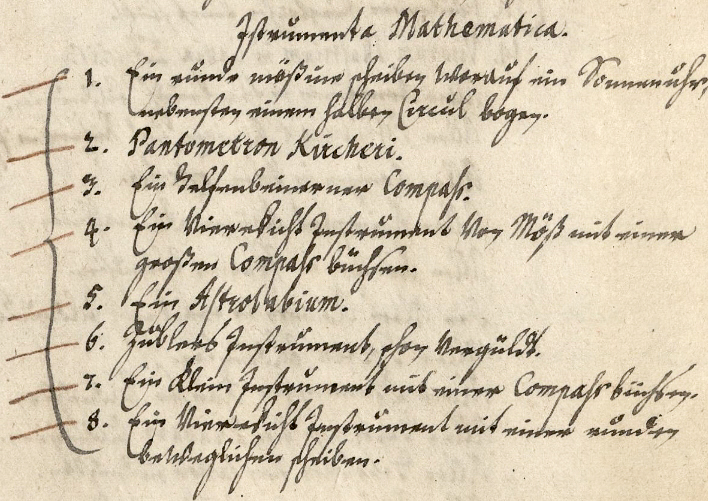 Instrumenta Mathematica.
1. Ein runde mößine scheiben worauf ein Sonnenuhr,
nebensten einem halben Circul bogen.
2. Pantometron Kircheri.
3. Ein Helfenbeinerner Compass.
4. Ein Viereckicht Instrument Von Möß mit einer
großen Compass büchsen.
5. Ein Astrolabium.
6. Züblers Instrument, schon Vergüldt.
7. Ein Klein Instrument mit einer Compass büchsen.
8. Ein Viereckicht Instrument mit einer runden
beweglichen scheiben.